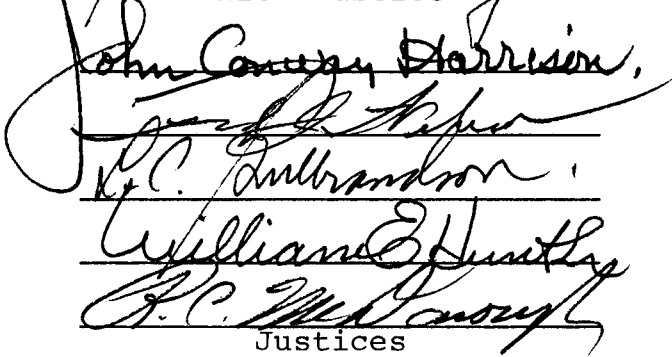 John Conway Harrison.
L. C. Gulbrandson
William E Hunt
R. C. McDonough
Justices